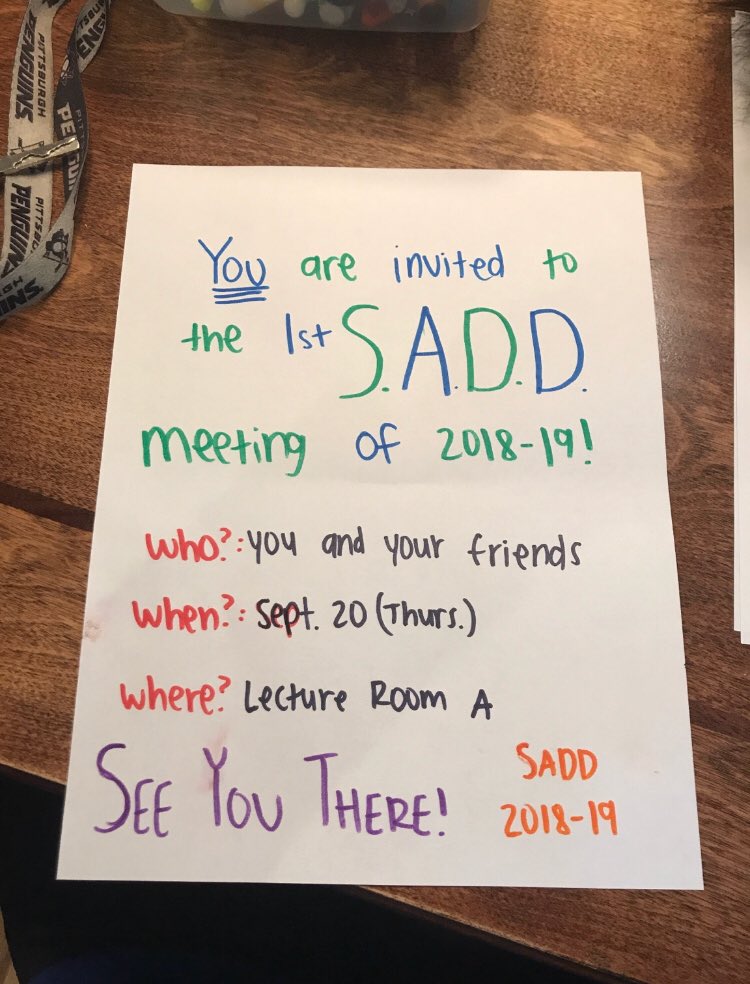 PITTSBURGH
PENGUINS
You are invited to
the 1st S.A.D.D.
meeting of 2018-19!
who?: you and your friends
when?: Sept. 20 (Thurs.)
where? Lecture Room A
SEE YOU THERE!
SADD
2018-19